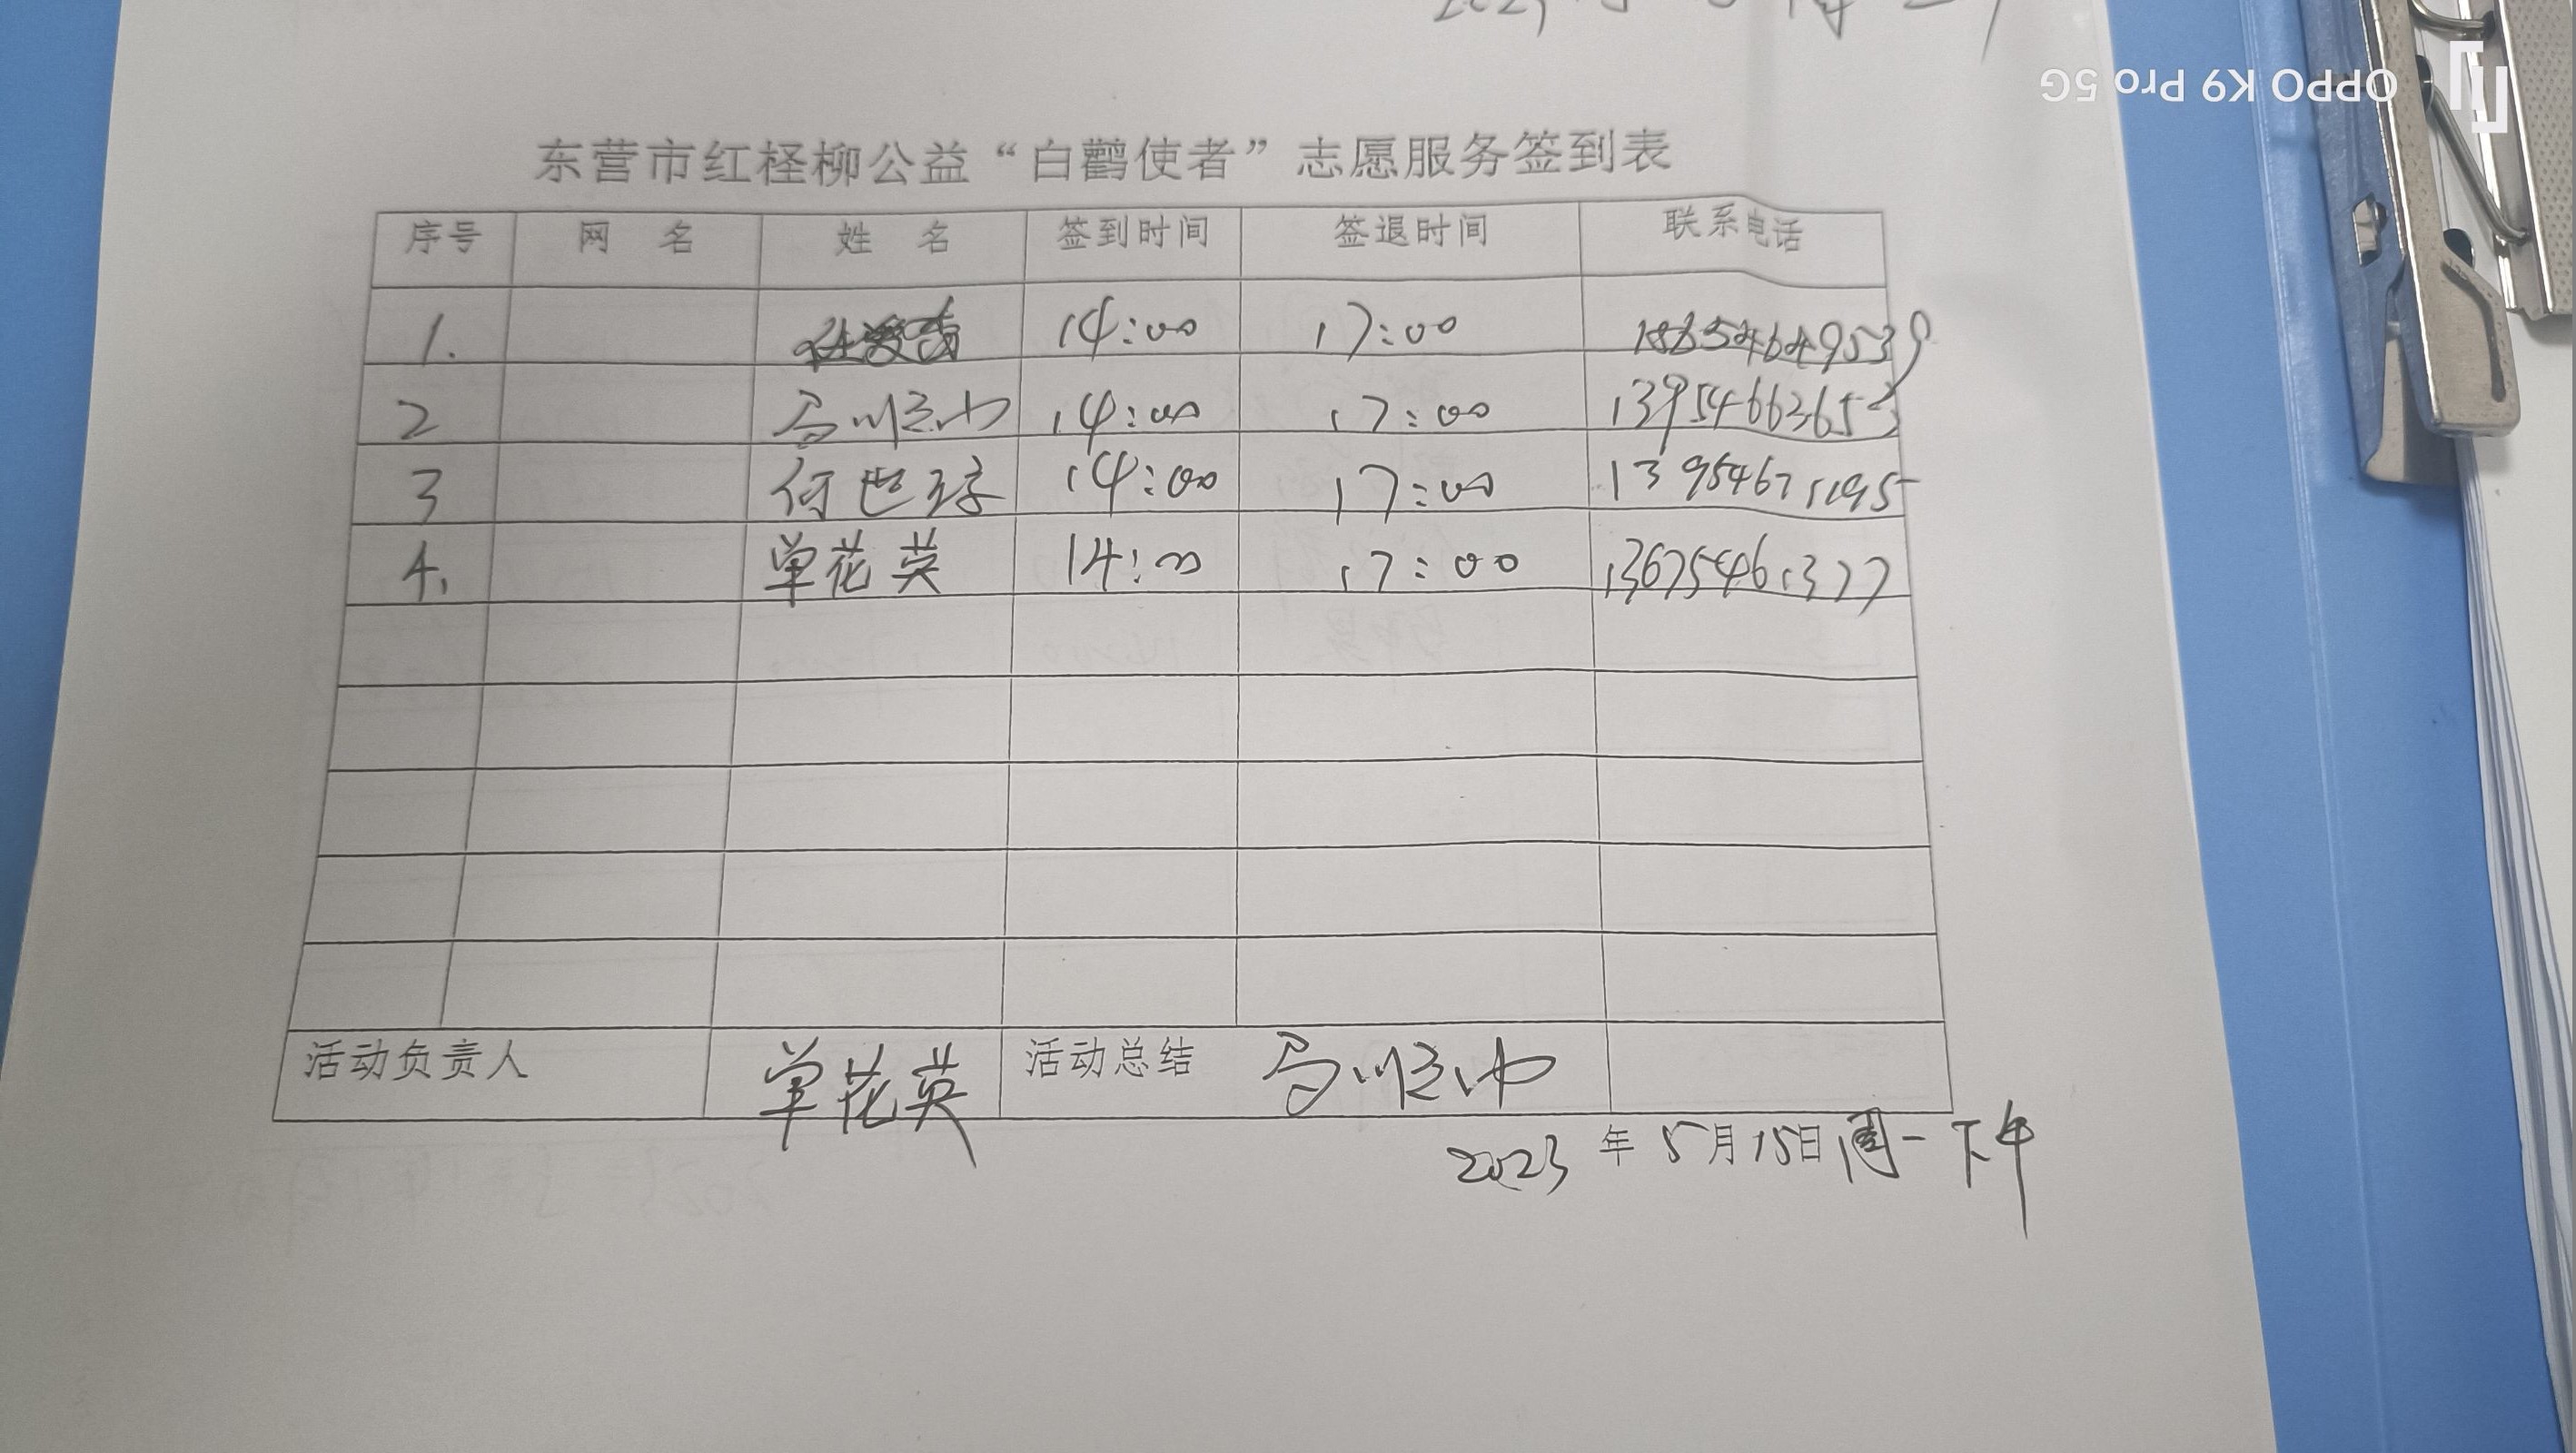 东营市红柽柳公益“白鹳使者”志愿服务签到表
序号 网 名 姓 名 签到时间 签退时间 联系电话
1. 14:00 17:00 18654649539
2 14:00 17:00 13954663653
3 何世琼 14:00 17:00 13954675195
4. 单花英 14:00 17:00 13675461377
活动负责人 单花英 活动总结
2023年5月15日周一下午
OPPO K9 Pro 5G